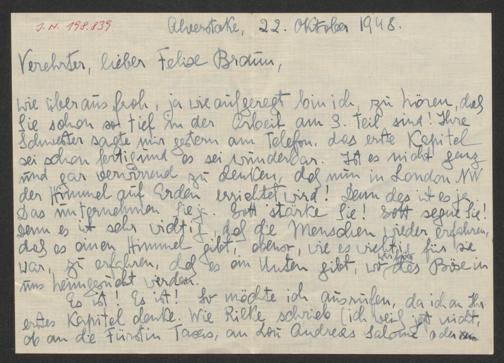 J.N. 198.839
Alverstoke, 22. Oktober 1948.
Verehrter, lieber Felix Braun,
wie überaus froh, ja wie aufgeregt bin ich, zu hören, daß
Sie schon so tief in der Arbeit am 3. Teil sind! Ihre
Schwester sagte mir gestern am Telefon, das erste Kapitel
sei schon fertig und es sei wunderbar. Ist es nicht ganz
und gar verwirrend zu denken, daß nun in London NW
der Himmel auf Erden errichtet wird! Denn das ist es ja,
das unternehmen Sie ja. Gott stärke Sie! Gott segne Sie!
Denn es ist sehr wichtig, daß die Menschen wieder erfahren,
daß es einen Himmel gibt, ebenso, wie es wichtig für sie
war, zu erfahren, daß es ein Unten gibt, wo das Böse in
uns heimgesucht werden.
Es ist! Es ist! So möchte ich ausrufen, da ich an Ihr
erstes Kapitel denke. Wie Rilke schrieb (ich weiß jetzt nicht,
ob an die Fürstin Taxis, an Lou Andreas Salomé oder